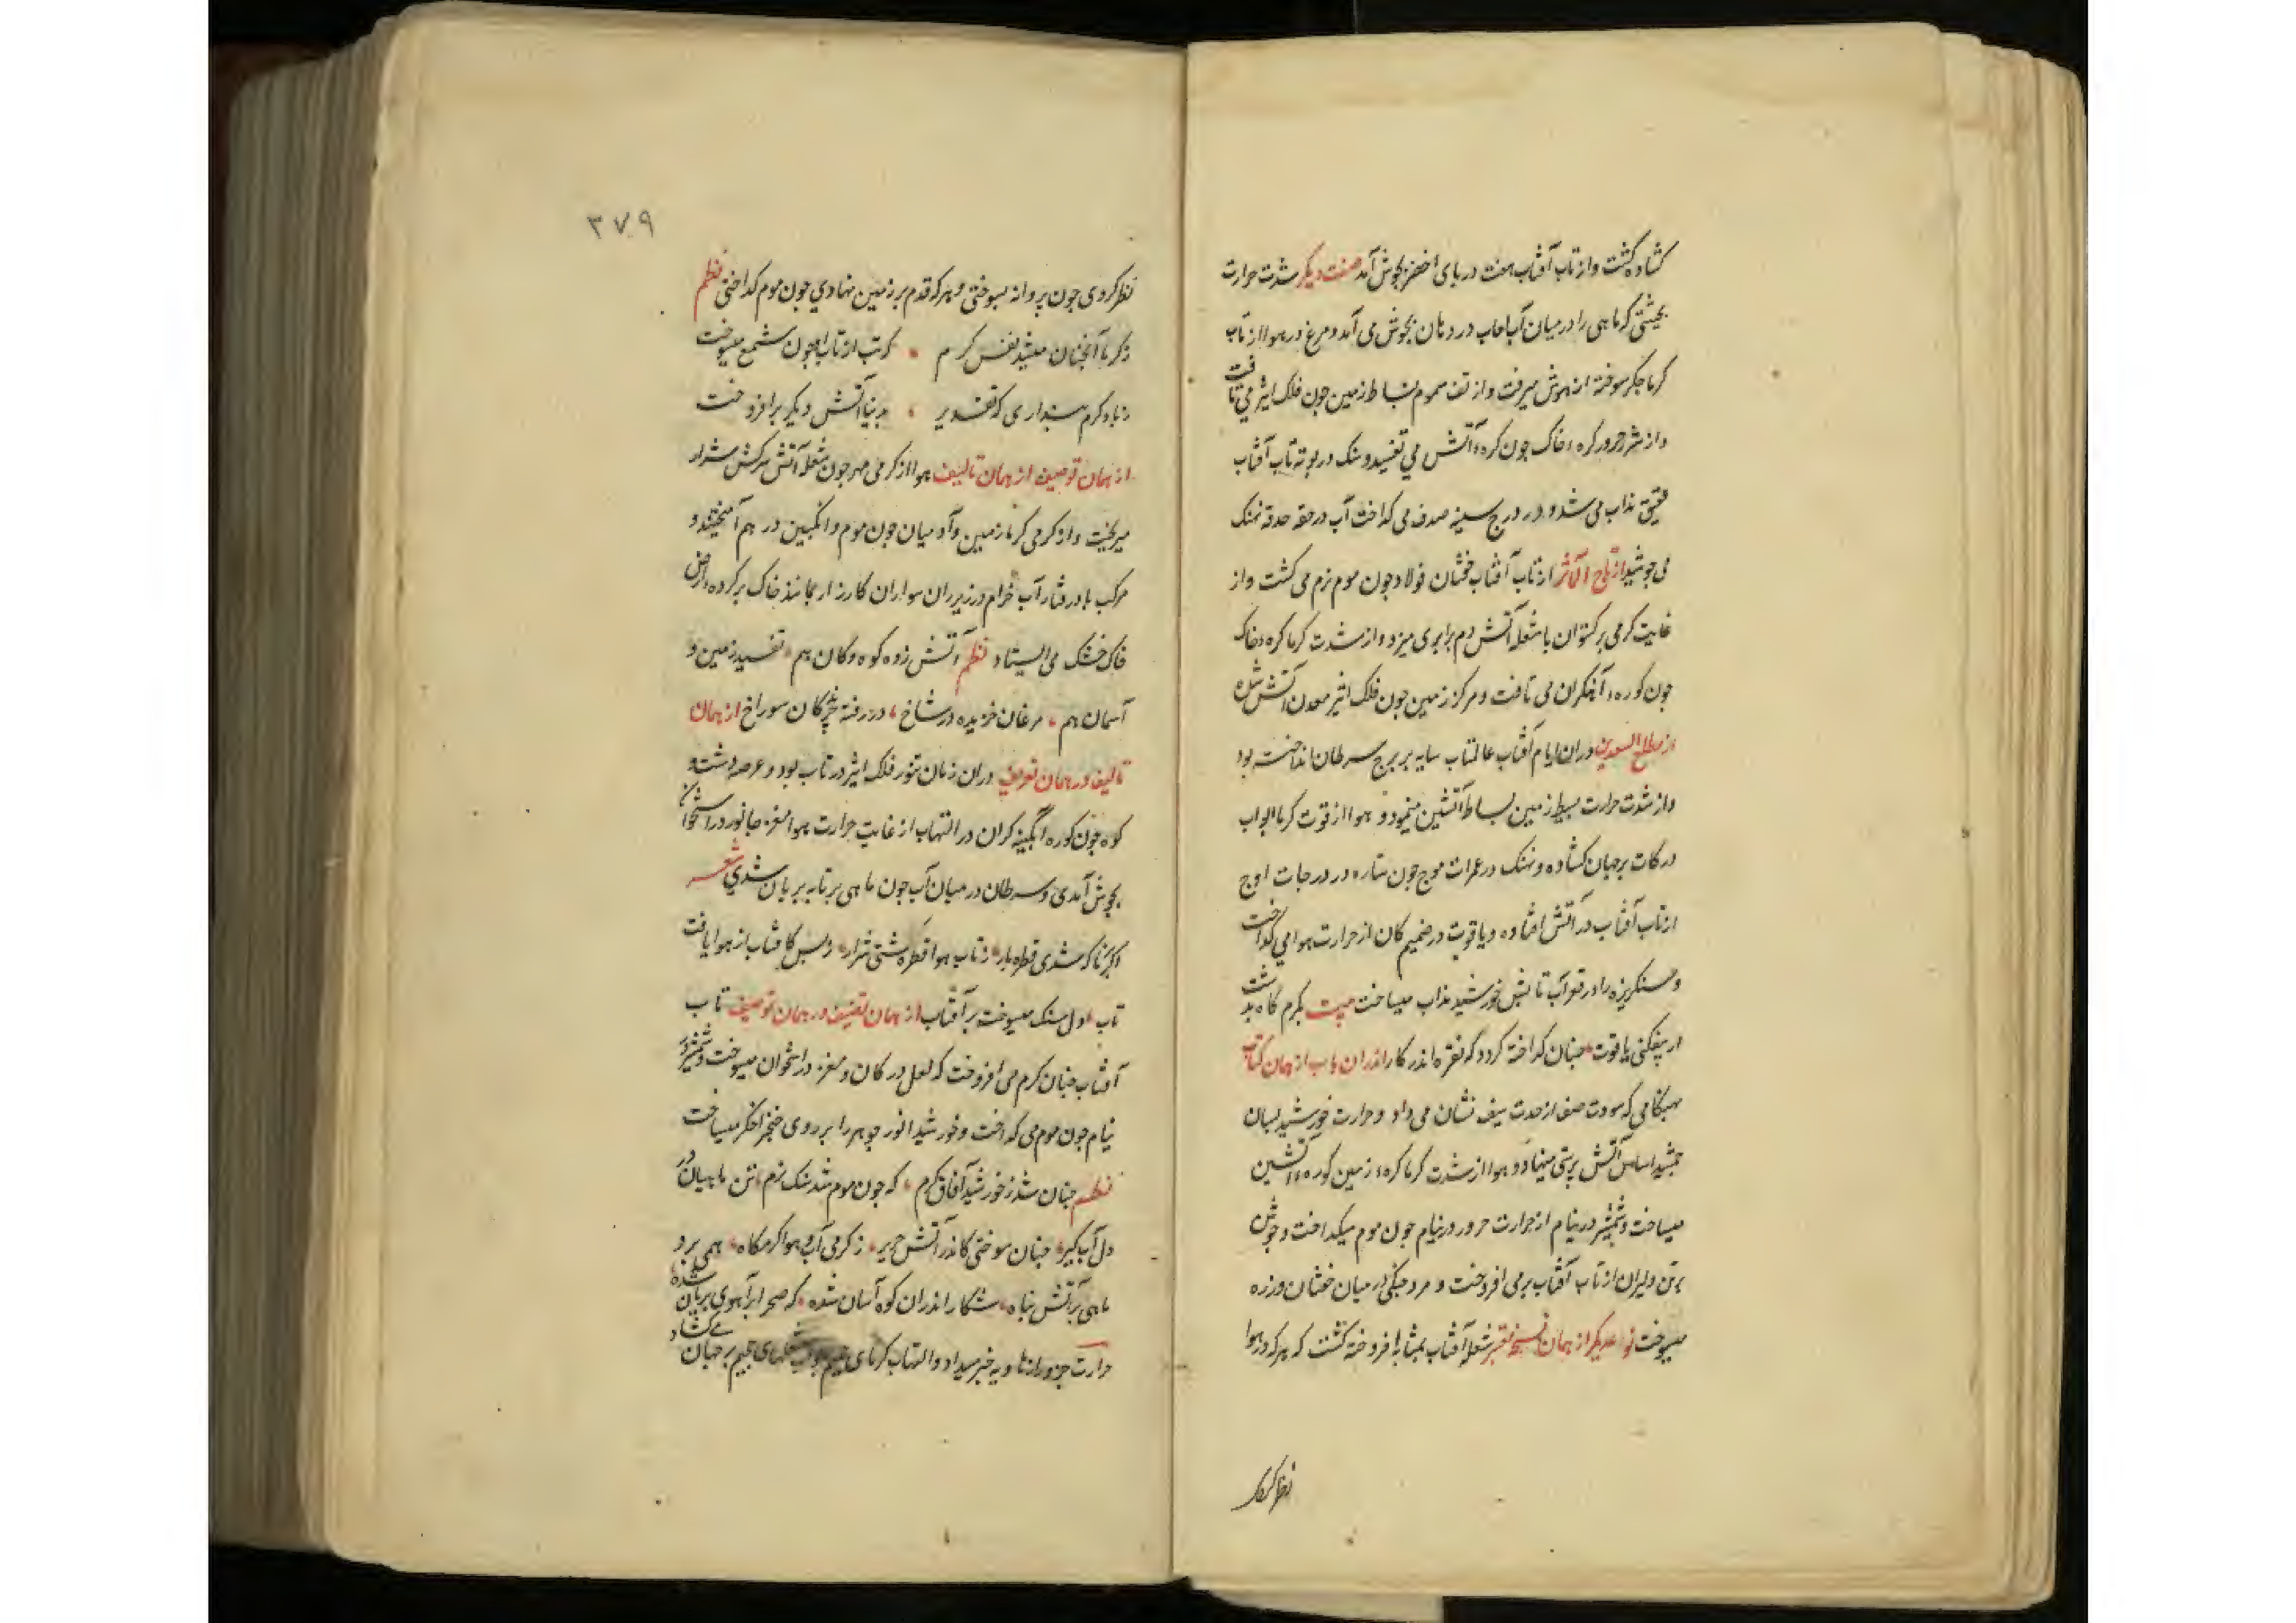 کشاده کشت و از تاب آفتاب هفت دریای اخضر بجوش آمد صفت دیکر شدت حرارت
بحیثتی که ماهی را در میان آب لعاب در دهان بجوش می آمد و مرغ در هوا از تاب
کرما جکر سوخته از هوش میرفت و از تف سموم بساط زمین چون فلک اثیر می تافت
و از شرر حرور کره خاک چون کره آتش می تفسید و سنک در بوته تاب آفتاب
عقیق مذاب می شد و در درج سینه صدف می کداخت آب در حقه حدقه نهنک
می جوشید از تاج المآثر از تاب آفتاب خفتان فولاد چون موم نرم می کشت و از
غایت کرمی برکستوان با شعله آتش دم برابری میزد و از شدت کرما کره خاک
چون کوره آهنکران می تافت و مرکز زمین چون فلک اثیر معدن آتش شده
از مطلع السعدین در ان ایام آفتاب عالمتاب سایه بر برج سرطان انداخته بود
و از شدت حرارت بسیط زمین بساط آتشین مینمود و هوا از قوت کرما ابواب
درکات بر جهان کشاده و نهنک در غمرات موج چون ستاره در درجات اوج
از تاب آفتاب در آتش افتاده و یاقوت در صمیم کان از حرارت هوا می کداخت
و سنکریزه را در قعر آب تابش خورشید مذاب میساخت بیت بکرم کاه بدشت
ار بیفکنی یاقوت چنان کداخته کردد که نقره اندر کار اندران باب از همان کتاب
هنکامی که سورت صف از حدت سیف نشان می داد و حرارت خورشید بسان
جمشید اساس آتش پرستی مینهاد و هوا از شدت کرما کره زمین کوره آتشین
میساخت و شمشیر در نیام از حرارت حرور در نیام چون موم میکداخت و جوشن
بر تن دلیران از تاب آفتاب بر می افروخت و مرد جنکی در میان خفتان و زره
میسوخت نوعدیکر از همان نسخه معتبر شعله آفتاب بمثابه افروخته کشت که هر که در هوا
نظر کردی
۳۷۹
نظر کردی چون پروانه بسوختی و هر که قدم بر زمین نهادی چون موم کداختی نظم
ز کرما آنچنان میشد نفس کرم کز تب از تاب او چون شمع میسوخت
ز باد کرم پنداری که تقدیر بدنیا آتش دیکر برافروخت
از همان توصیف از همان تالیف هوا از کرمی مهر چون شعله آتش سرکش شرار
میریخت و از کرمی کرما زمین و آدمیان چون موم و انکبین در هم آمیختند و
مرکب بادرفتار آب خرام در زیر ران سواران کارزار بمانند خاک بر کرده ارض
خاک خشک می ایستاد نظم آتش زده کوه و کان هم تفسید زمین و
آسمان هم مرغان خزیده در شاخ در رفته خزندکان سوراخ از همان
تالیف در همان تعریف در ان زمان تنور فلک اثیر در تاب بود و عرصه دشت و
کوه چون کوره آبکینه کران در التهاب از غایت حرارت هوا مغز جانور در استخوان
بجوش آمدی و سرطان در میان آب چون ماهی بر تابه بریان شدی شعر
ابر کر که شدی قطره بار ز تاب هوا قطره کشتی شرار ز بس کافتاب از هوا یافت
تاب دل سنک میسوخت بر آفتاب از همان تصنیف در همان توصیف تاب
آفتاب چنان کرم می افروخت که لعل در کان و مغز در استخوان میسوخت و شمشیر در
نیام چون موم می کداخت و خورشید انور جوهر را بر روی خنجر اخکر میساخت
نظم چنان شد ز خورشید آفاق کرم که چون موم شد سنک نرم تن ماهیان در
دل آبکیر چنان سوختی کاندر آتش حریر ز کرمی آب و هوا کرمکاه همی برد
ماهی بر آتش پناه شکار اندران کوه آسان شده که صحرا بر آهوی بریان شده
حرارت حرور از هاویه خبر میداد و التهاب کرمای شعلهای جحیم بر جهان می کشاد